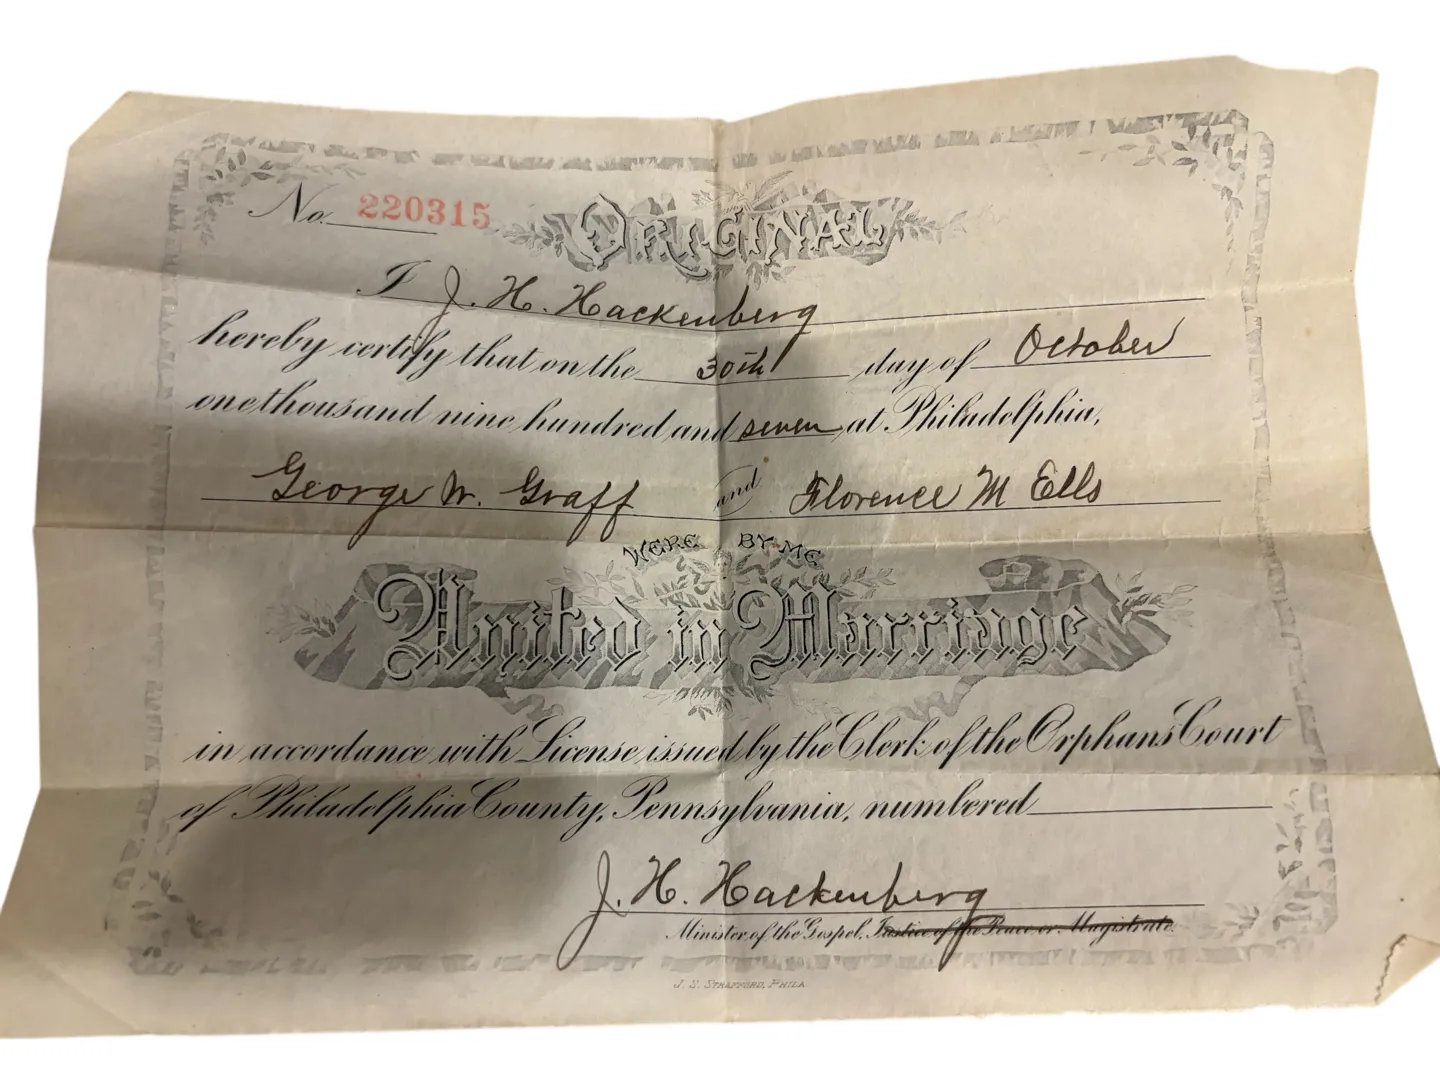 No. 220315 ORIGINAL
I J. H. Hackenberg
hereby certify that on the 30th day of October
one thousand nine hundred and seven at Philadelphia,
George W. Graff and Florence M Ells
WERE BY ME
United in Marriage
in accordance with License issued by the Clerk of the Orphans' Court
of Philadelphia County, Pennsylvania, numbered
J. H. Hackenberg
Minister of the Gospel, Justice of the Peace or Magistrate.
J. S. STRAFFORD, PHILA